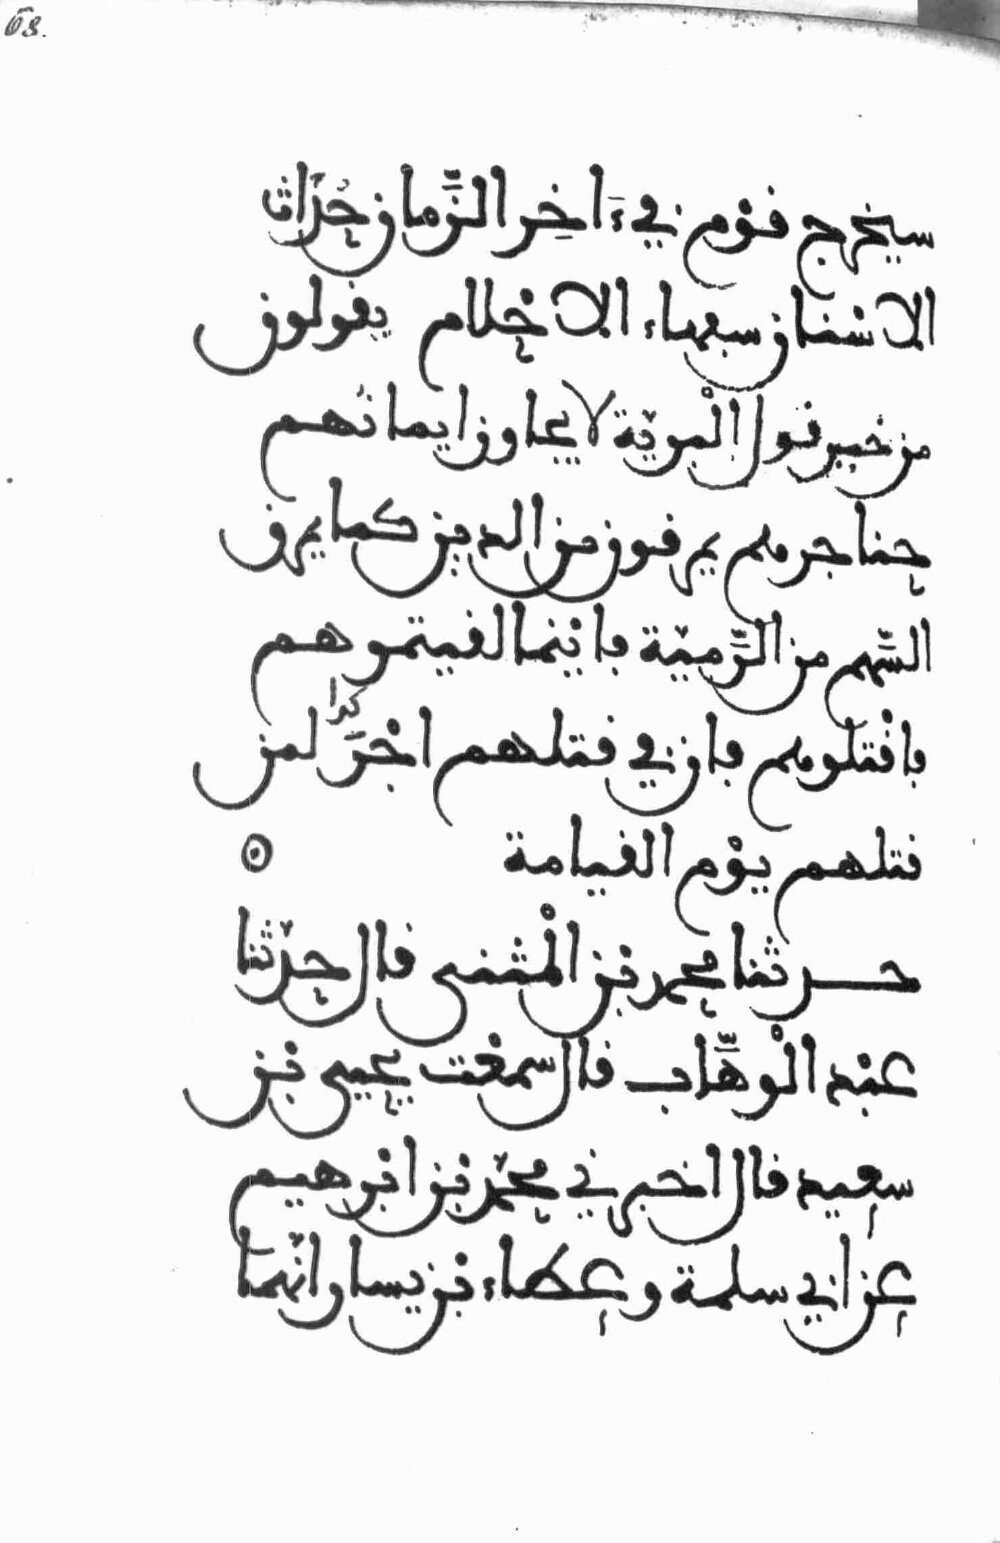 68.
سيخرج قوْم في ءَاخِر الزَّمان حُدَّاث
الاسْنان سفهاء الاحْلام يقولون
من خير قول الْبريّة لا يجاوز ايمانُهم
حناجرهم يمرقون من الدين كما يمرق
السَّهم من الرَّميّة فايْنما لقيتموهم
كذا
فاقْتلوهم فان في قتلهم اجْرَّ لمن
قتلهم يوْم القيامة
حدثنا محمد بْن الْمثنى قال حدّثنا
عبْد الْوهَّاب قال سمعْت يحيى بْن
سعيد قال اخبرني محمّد بْن ابْرهيم
عن ابي سلمة وعطاء بْن يسار انّهما